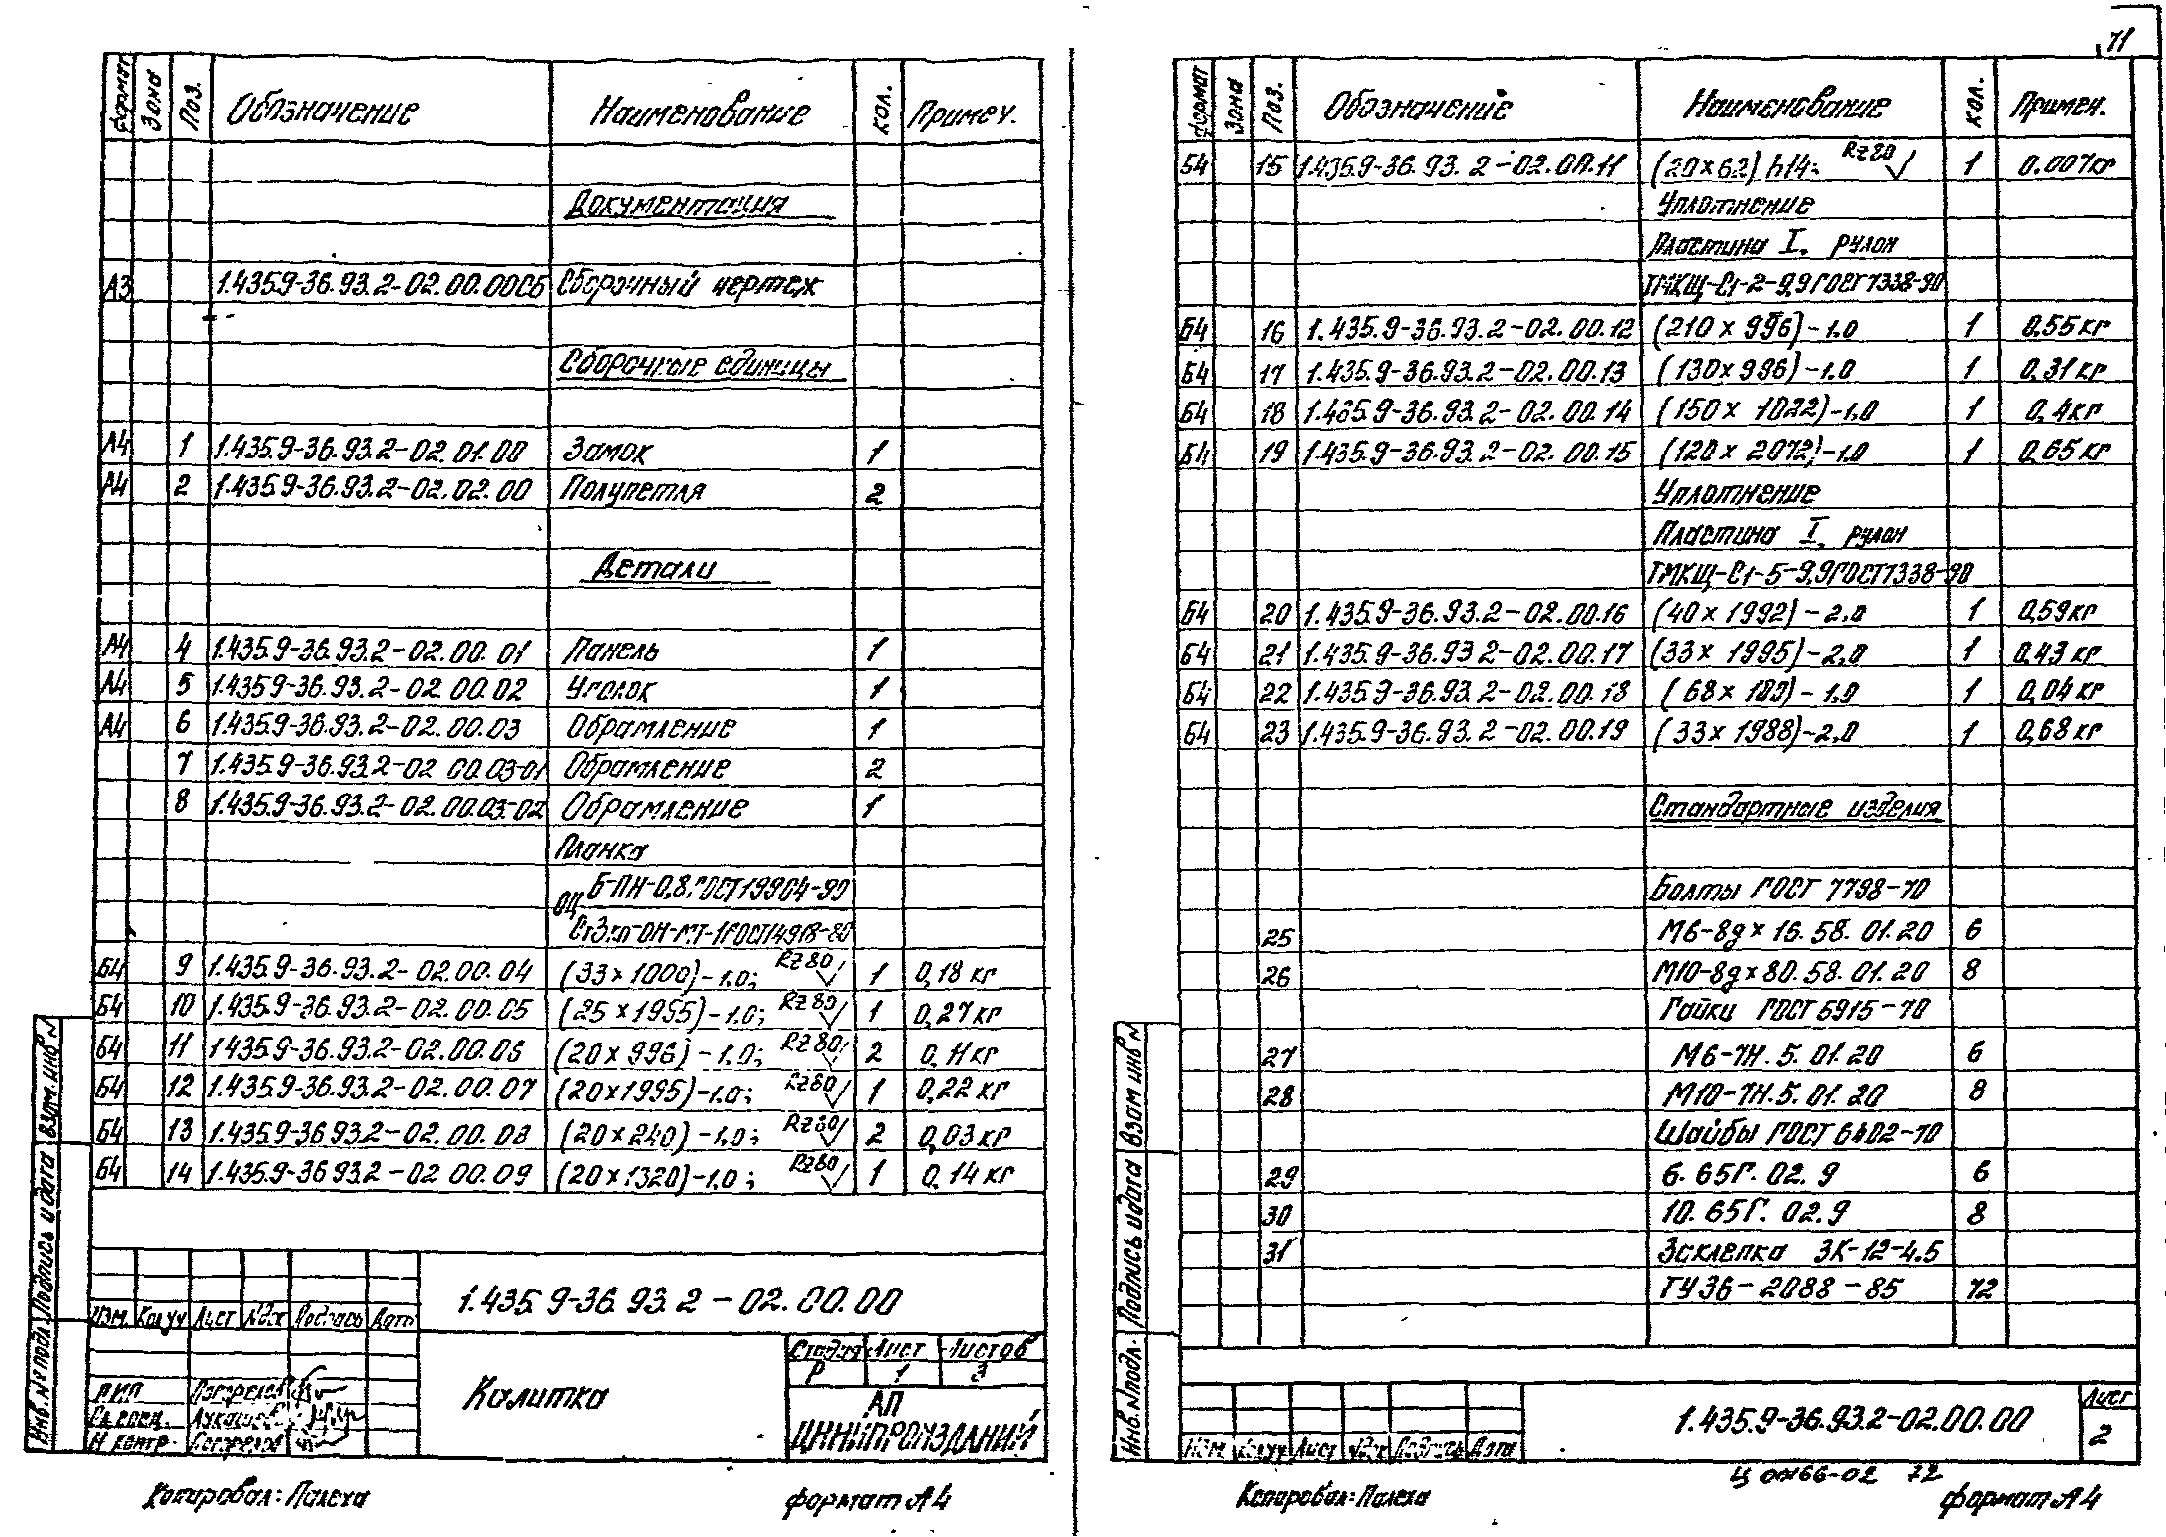 71
формат Зона Поз. Обозначение Наименование кол. Примеч.
Документация
А3 1.435.9-36.93.2-02.00.00СБ Сборочный чертеж
Сборочные единицы
А4 1 1.435.9-36.93.2-02.01.00 Замок 1
А4 2 1.435.9-36.93.2-02.02.00 Полупетля 2
Детали
А4 4 1.435.9-36.93.2-02.00.01 Панель 1
А4 5 1.435.9-36.93.2-02.00.02 Уголок 1
А4 6 1.435.9-36.93.2-02.00.03 Обрамление 1
7 1.435.9-36.93.2-02.00.03-01 Обрамление 2
8 1.435.9-36.93.2-02.00.03-02 Обрамление 1
Планка
Б-ПН-0,8.ГОСТ19904-90
ОЦ
Ст3кп-ОН-МТ-1ГОСТ14918-80
Б4 9 1.435.9-36.93.2-02.00.04 (33×1000)-1.0; Rz80 1 0,18 кг
Б4 10 1.435.9-36.93.2-02.00.05 (25×1995)-1.0; Rz80 1 0,27 кг
Б4 11 1435.9-36.93.2-02.00.06 (20×996)-1.0; Rz80 2 0,11 кг
Б4 12 1.435.9-36.93.2-02.00.07 (20×1995)-1.0; Rz80 1 0,22 кг
Б4 13 1.435.9-36 93.2-02.00.08 (20×240)-1.0; Rz80 2 0,03 кг
Б4 14 1.435.9-36 93.2-02 00.09 (20×1320)-1.0; Rz80 1 0,14 кг
Изм. Кол.уч Лист №док Подпись Дата
1.435.9-36.93.2-02.00.00
Калитка
Стадия Лист Листов
Р 1 3
АП
ЦНИИПРОМЗДАНИЙ
ГИП
Гл.спец.
Н контр.
Инв. № подл Подпись и дата Взам.инв №
Копировал: Палеха формат А4
формат Зона Поз. Обозначение Наименование кол. Примеч.
Б4 15 1.435.9-36.93.2-02.00.11 (20×62) h14; Rz80 1 0.007кг
Уплотнение
Пластина I, рулон
ТМКЩ-С1-2-9,9 ГОСТ7338-90
Б4 16 1.435.9-36.93.2-02.00.12 (210×996)-1.0 1 0.55кг
Б4 17 1.435.9-36.93.2-02.00.13 (130×996)-1.0 1 0,31кг
Б4 18 1.435.9-36.93.2-02.00.14 (150×1022)-1,0 1 0,4кг
Б4 19 1.435.9-36.93.2-02.00.15 (120×2072)-1.0 1 0,65кг
Уплотнение
Пластина I, рулон
ТМКЩ-С1-5-9,9ГОСТ7338-90
Б4 20 1.435.9-36.93.2-02.00.16 (40×1992)-2,0 1 0,59кг
Б4 21 1.435.9-36.93 2-02.00.17 (33×1995)-2,0 1 0,43 кг
Б4 22 1.435.9-36.93.2-02.00.18 (68×180)-1.0 1 0,04 кг
Б4 23 1.435.9-36.93.2-02.00.19 (33×1988)-2,0 1 0,68 кг
Стандартные изделия
Болты ГОСТ 7798-70
25 М6-8g×16.58.01.20 6
26 М10-8g×80.58.01.20 8
Гайки ГОСТ 5915-70
27 М6-7Н.5.01.20 6
28 М10-7Н.5.01.20 8
Шайбы ГОСТ 6402-70
29 6.65Г.02.9 6
30 10.65Г.02.9 8
31 Заклепка ЗК-12-4,5
ТУ36-2088-85 72
Изм Кол.уч Лист №док Подпись Дата
1.435.9-36.93.2-02.00.00
Лист
2
Инв.№подл. Подпись и дата Взам инв №
Ц 00466-02 72
Копировал: Палеха формат А4